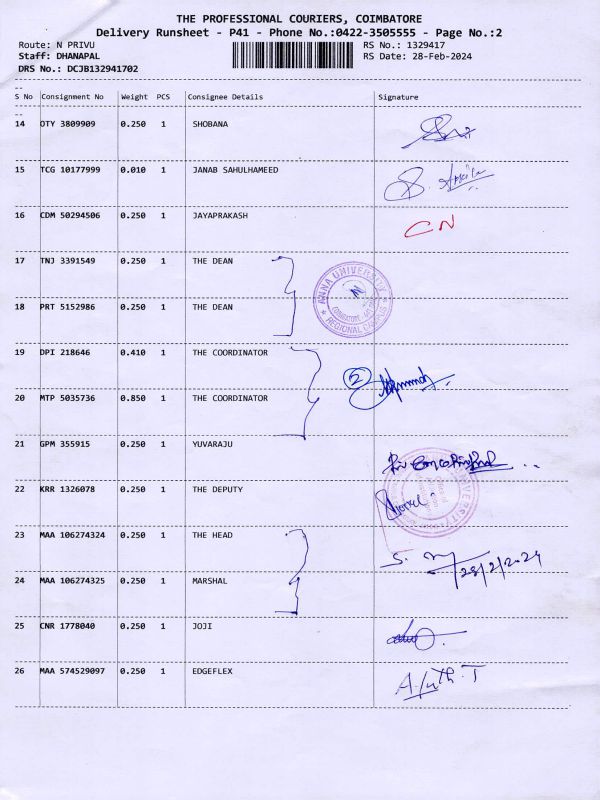 THE PROFESSIONAL COURIERS, COIMBATORE
Delivery Runsheet - P41 - Phone No.:0422-3505555 - Page No.:2
Route: N PRIVU RS No.: 1329417
Staff: DHANAPAL RS Date: 28-Feb-2024
DRS No.: DCJB132941702
S No Consignment No Weight PCS Consignee Details Signature
14 OTY 3809909 0.250 1 SHOBANA
15 TCG 10177999 0.010 1 JANAB SAHULHAMEED
16 CDM 50294506 0.250 1 JAYAPRAKASH CN
17 TNJ 3391549 0.250 1 THE DEAN
ANNA UNIVERSITY
REGIONAL CAMPUS
18 PRT 5152986 0.250 1 THE DEAN
19 DPI 218646 0.410 1 THE COORDINATOR
2
20 MTP 5035736 0.850 1 THE COORDINATOR
21 GPM 355915 0.250 1 YUVARAJU
22 KRR 1326078 0.250 1 THE DEPUTY
23 MAA 106274324 0.250 1 THE HEAD
28/2/2024
24 MAA 106274325 0.250 1 MARSHAL
25 CNR 1778040 0.250 1 JOJI
26 MAA 574529097 0.250 1 EDGEFLEX